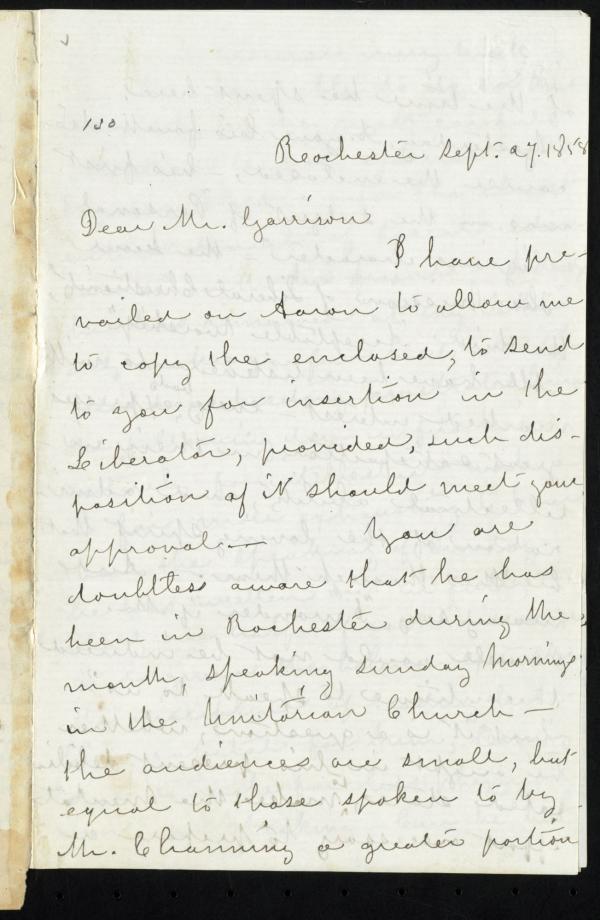 130
Rochester Sept. 27. 1858
Dear Mr. Garrison
I have pre-
vailed on Aaron to allow me
to copy the enclosed, to send
to you for insertion in the
Liberator, provided, such dis-
position of it should meet your
approval — You are
doubtless aware that he has
been in Rochester during the
month, speaking Sunday Mornings
in the Unitarian Church —
the audiences are small, but
equal to those spoken to by
Mr. Channing a greater portion